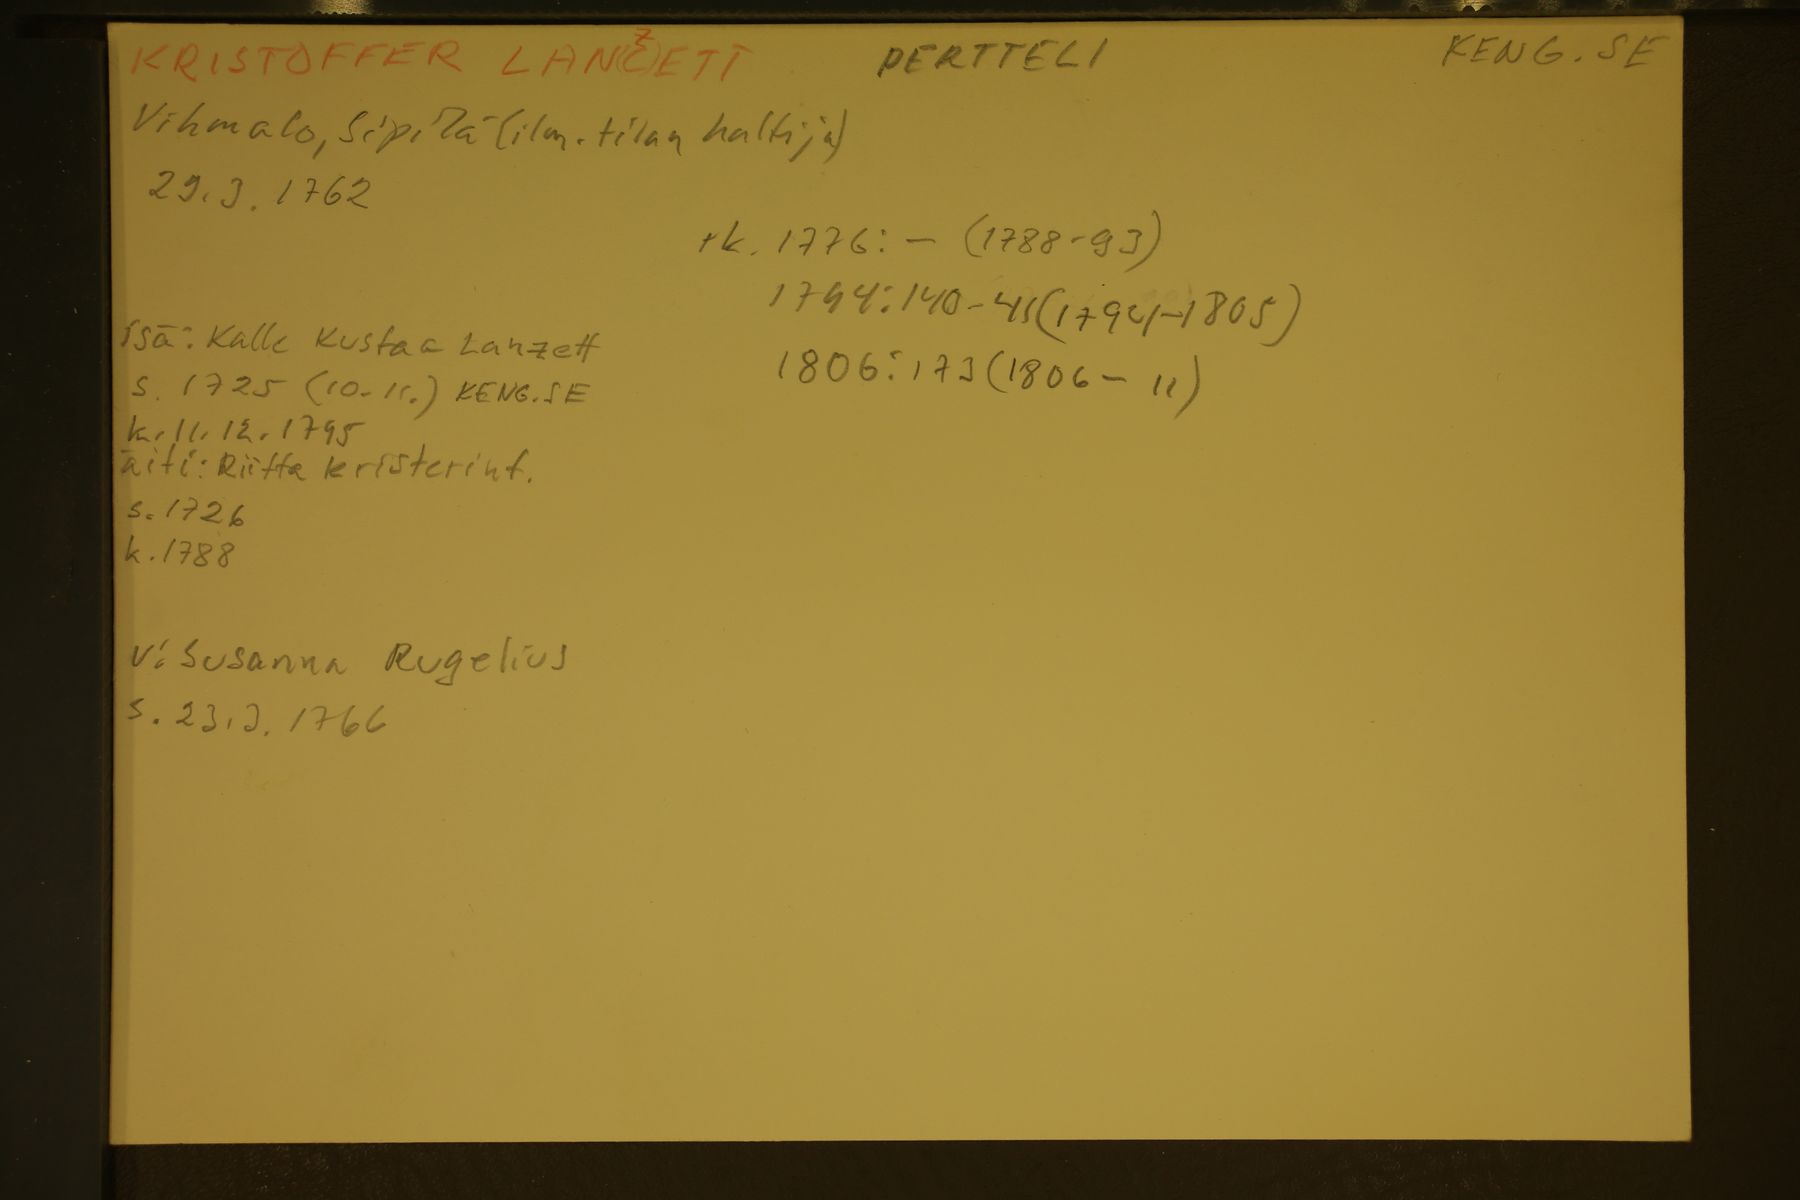 KRISTOFFER LAN(C)ETT PERTTELI KENG. SE
Z
Vihmalo, Sipilä (ilm. tilan haltija)
29.3. 1762
rk. 1776: - (1788-93)
1794: 140-41 (1794-1805)
1806: 173 (1806-11)
isä: Kalle Kustaa Lanzett
s. 1725 (10.11.) KENG.SE
k. 11.12.1795
äiti: Riitta Kristerint.
s. 1726
k. 1788
v: Susanna Rugelius
s. 23.3. 1766